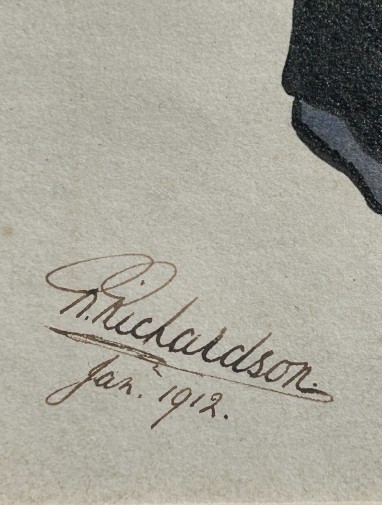 N. Richardson.
Jan. 1912.